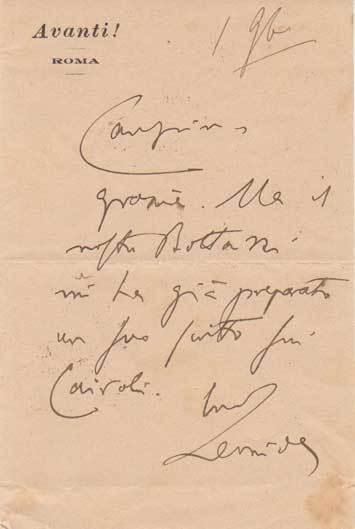 Avanti!
ROMA
1 96
Carissimo
grazie. Ma il
nostro Bottazzi
mi ha già preparato
un suo scritto sui
Cairoli.
Leonida